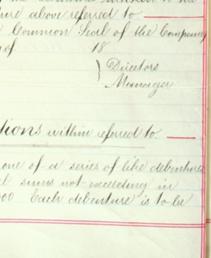 ture above referred to
Common Seal of the Company
of 18
Directors
Manager
tions within referred to
one of a series of like debentures
sums not exceeding in
000 Each debenture is to be